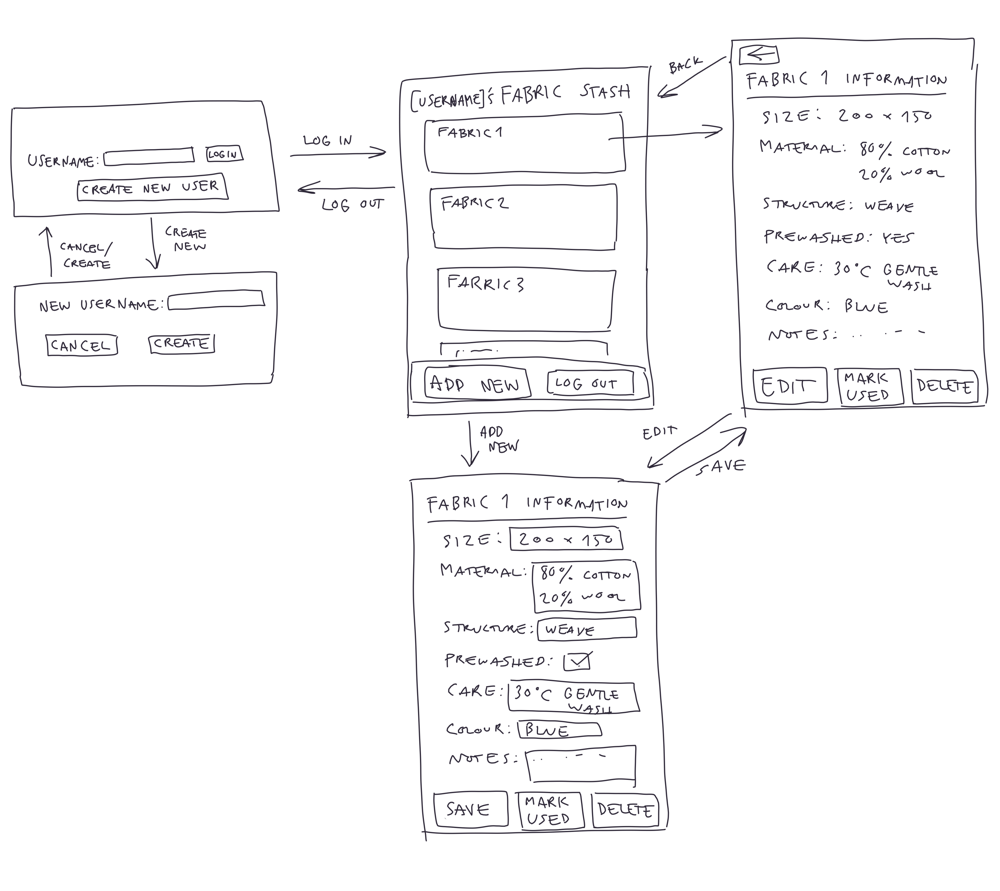 USERNAME:
LOGIN
CREATE NEW USER
CANCEL/
CREATE
CREATE
NEW
NEW USERNAME:
CANCEL
CREATE
LOG IN
LOG OUT
[USERNAME]'S FABRIC STASH
FABRIC 1
FABRIC 2
FABRIC 3
ADD NEW
LOG OUT
BACK
←
FABRIC 1 INFORMATION
SIZE: 200 x 150
MATERIAL: 80% COTTON
20% WOOL
STRUCTURE: WEAVE
PREWASHED: YES
CARE: 30°C GENTLE
WASH
COLOUR: BLUE
NOTES:
EDIT
MARK
USED
DELETE
ADD
NEW
EDIT
SAVE
FABRIC 1 INFORMATION
SIZE: 200 x 150
MATERIAL: 80% COTTON
20% WOOL
STRUCTURE: WEAVE
PREWASHED:
CARE: 30°C GENTLE
WASH
COLOUR: BLUE
NOTES:
SAVE
MARK
USED
DELETE